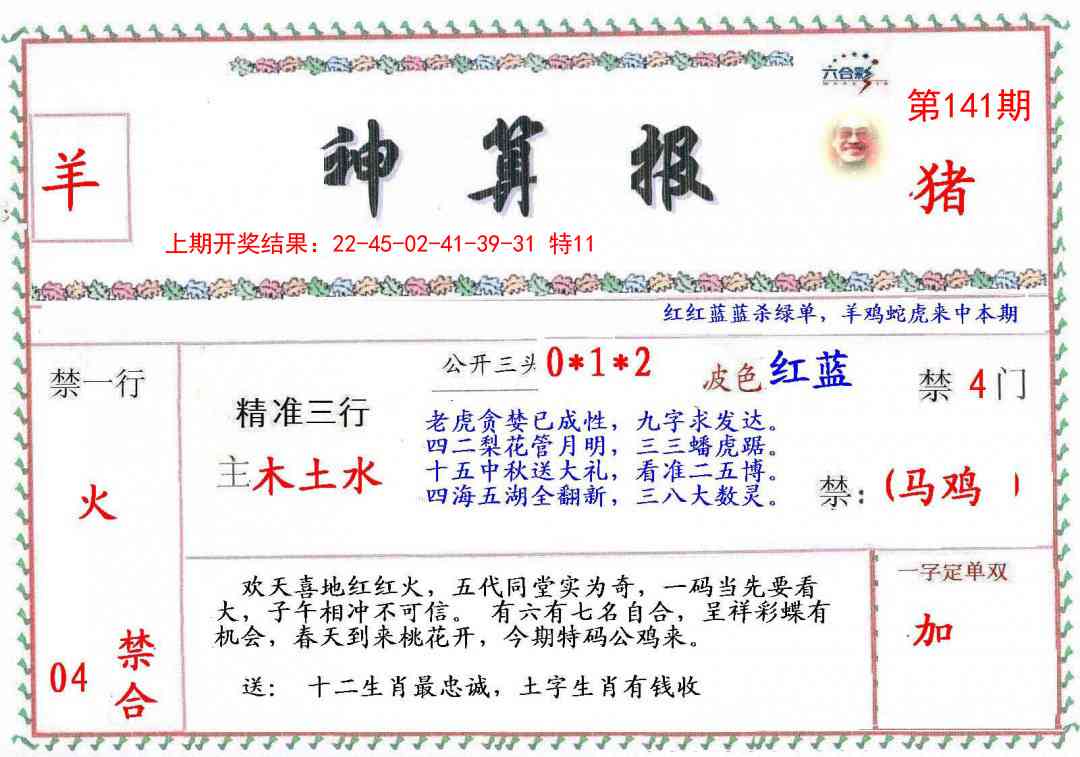 六合彩
第141期
羊
神算报
猪
上期开奖结果：22-45-02-41-39-31 特11
红红蓝蓝杀绿单，羊鸡蛇虎来中本期
禁一行
火
04
禁合
精准三行
主木土水
公开三头 0*1*2
波色 红蓝
老虎贪婪已成性，九字求发达。
四二梨花管月明，三三蟠虎踞。
十五中秋送大礼，看准二五博。
四海五湖全翻新，三八大数灵。
禁 4 门
禁：(马鸡 )
欢天喜地红红火，五代同堂实为奇，一码当先要看
大，子午相冲不可信。 有六有七名自合，呈祥彩蝶有
机会，春天到来桃花开，今期特码公鸡来。
送： 十二生肖最忠诚，土字生肖有钱收
一字定单双
加